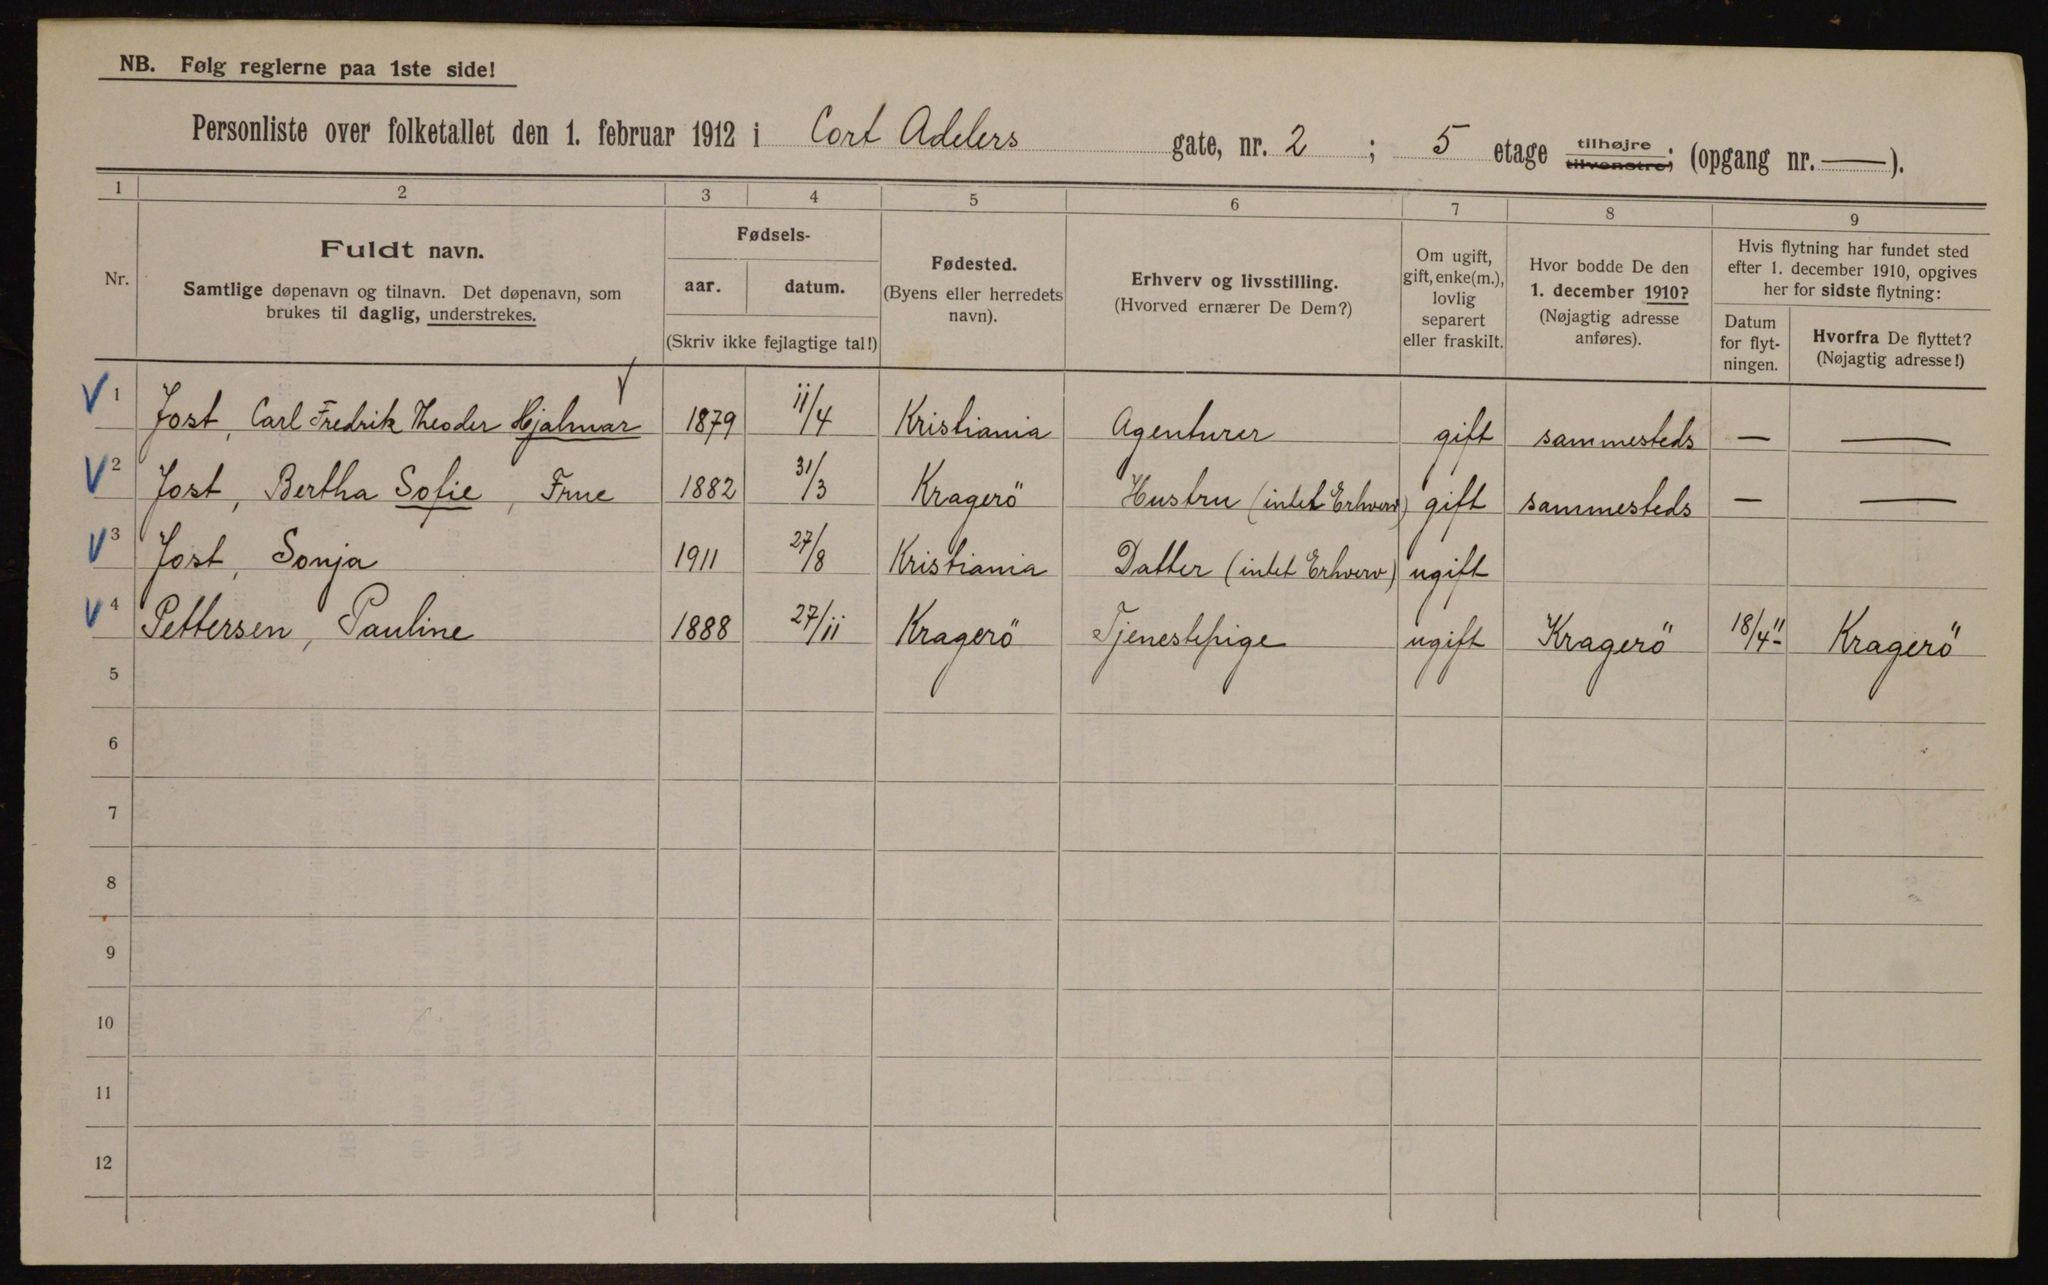 NB. Følg reglerne paa 1ste side!
Personliste over folketallet den 1. februar 1912 i Cort Adelers gate, nr. 2 ; 5 etage tilhøjre tilvenstre; (opgang nr. — ).
1 2 3 4 5 6 7 8 9
Nr.
Fuldt navn.
Samtlige døpenavn og tilnavn. Det døpenavn, som
brukes til daglig, understrekes.
Fødsels-
aar. datum.
(Skriv ikke fejlagtige tal!)
Fødested.
(Byens eller herredets
navn).
Erhverv og livsstilling.
(Hvorved ernærer De Dem?)
Om ugift,
gift, enke(m.),
lovlig
separert
eller fraskilt.
Hvor bodde De den
1. december 1910?
(Nøjagtig adresse
anføres).
Hvis flytning har fundet sted
efter 1. december 1910, opgives
her for sidste flytning:
Datum
for flyt-
ningen.
Hvorfra De flyttet?
(Nøjagtig adresse!)
V 1 Jost, Carl Fredrik Theoder Hjalmar 1879 11/4 Kristiania Agenturer gift sammesteds — —
V 2 Jost, Bertha Sofie, Frue 1882 31/3 Kragerö Hustru (intet Erhverv) gift sammesteds — —
V 3 Jost, Sonja 1911 27/8 Kristiania Datter (intet Erhverv) ugift
V 4 Pettersen, Pauline 1888 27/11 Kragerö Tjenestepige ugift Kragerö 18/4 11 Kragerö
5
6
7
8
9
10
11
12